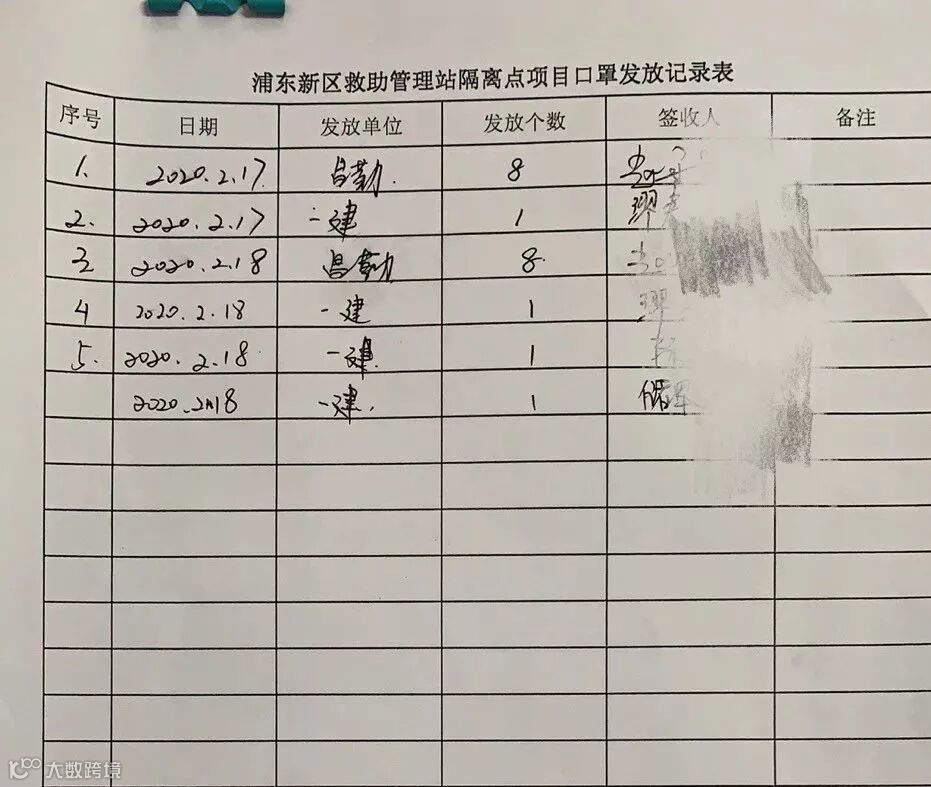 浦东新区救助管理站隔离点项目口罩发放记录表
序号 日期 发放单位 发放个数 签收人 备注
1. 2020.2.17. 昌勤. 8
2. 2020.2.17 一建 1
3 2020.2.18 昌勤 8.
4 2020.2.18 一建 1
5. 2020.2.18. 一建. 1
2020.2.18 一建. 1 储
大数跨境